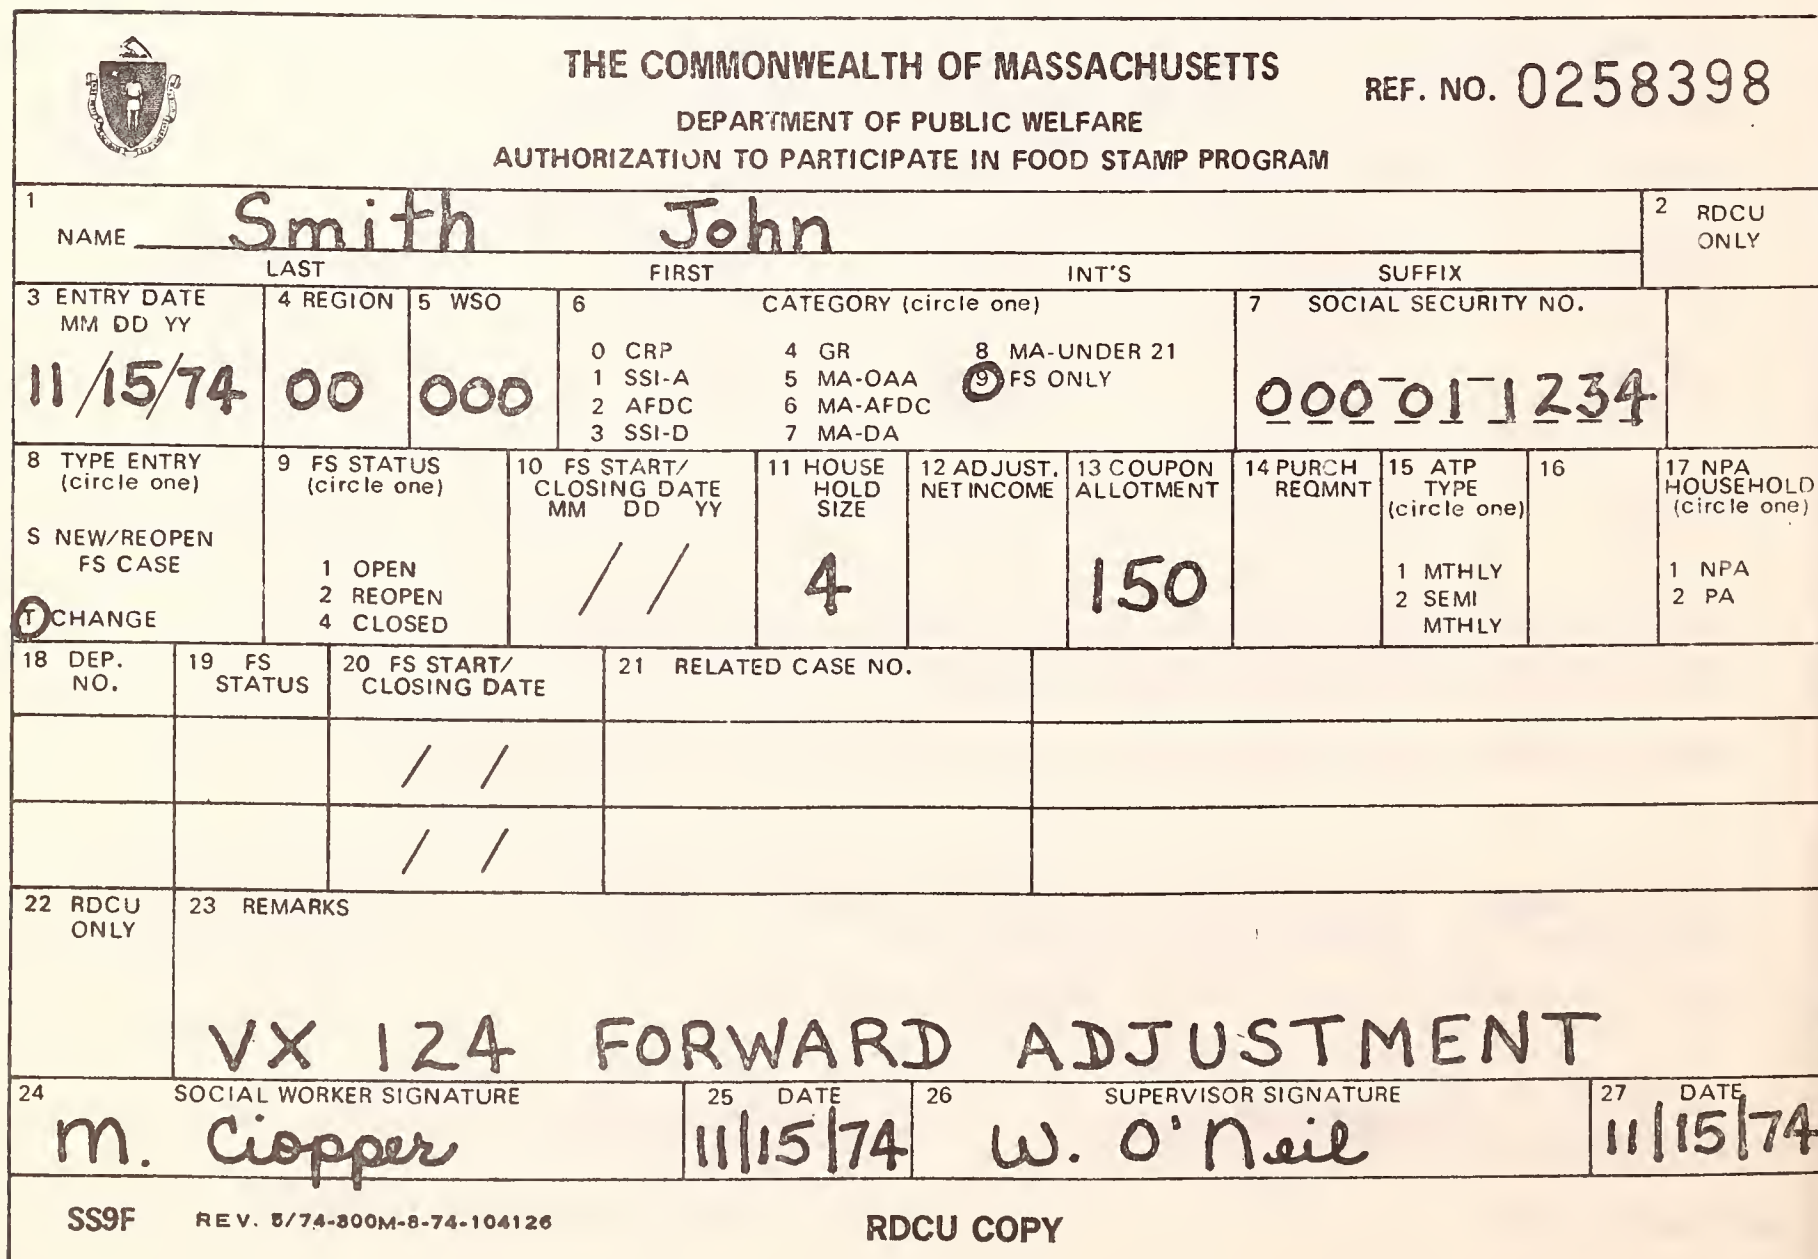 THE COMMONWEALTH OF MASSACHUSETTS
REF. NO. 0258398
DEPARTMENT OF PUBLIC WELFARE
AUTHORIZATION TO PARTICIPATE IN FOOD STAMP PROGRAM
1 NAME Smith John
LAST FIRST INT'S SUFFIX
2 RDCU
ONLY
3 ENTRY DATE
MM DD YY
11/15/74
4 REGION
00
5 WSO
000
6 CATEGORY (circle one)
0 CRP 4 GR 8 MA-UNDER 21
1 SSI-A 5 MA-OAA 9 FS ONLY
2 AFDC 6 MA-AFDC
3 SSI-D 7 MA-DA
7 SOCIAL SECURITY NO.
000-01-1234
8 TYPE ENTRY
(circle one)
S NEW/REOPEN
FS CASE
T CHANGE
9 FS STATUS
(circle one)
1 OPEN
2 REOPEN
4 CLOSED
10 FS START/
CLOSING DATE
MM DD YY
/ /
11 HOUSE
HOLD
SIZE
4
12 ADJUST.
NET INCOME
13 COUPON
ALLOTMENT
150
14 PURCH
REQMNT
15 ATP
TYPE
(circle one)
1 MTHLY
2 SEMI
MTHLY
16
17 NPA
HOUSEHOLD
(circle one)
1 NPA
2 PA
18 DEP.
NO.
19 FS
STATUS
20 FS START/
CLOSING DATE
21 RELATED CASE NO.
/ /
/ /
22 RDCU
ONLY
23 REMARKS
VX 124 FORWARD ADJUSTMENT
24 SOCIAL WORKER SIGNATURE
M. Ciopper
25 DATE
11/15/74
26 SUPERVISOR SIGNATURE
W. O'Neil
27 DATE
11/15/74
SS9F REV. 5/74-300M-8-74-104126 RDCU COPY